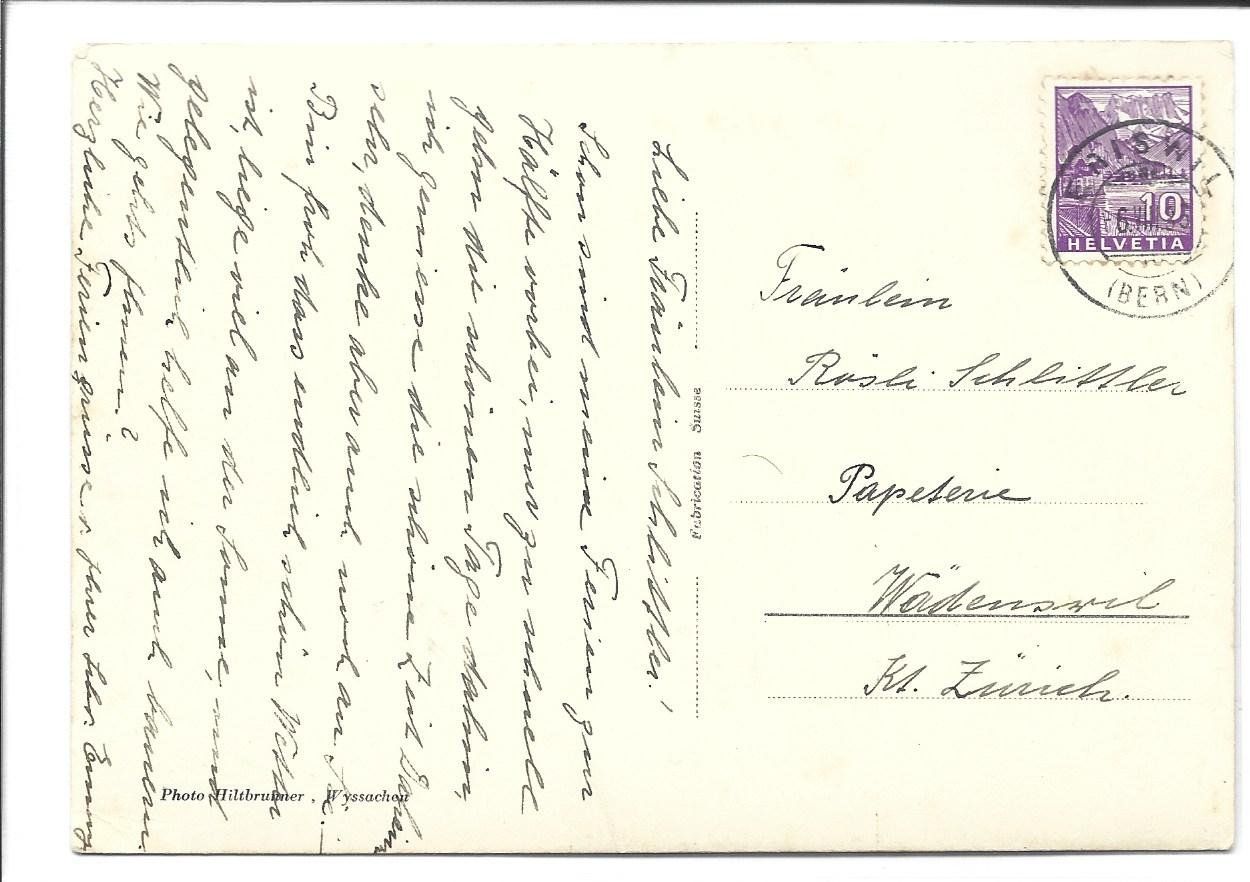 Liebe Fräulein Schlittler!
Schon sind meine Ferien zur
Hälfte vorbei, nur zu schnell
gehn die schönen Tage dahin,
ich geniesse die schöne Zeit
sehr, denke aber auch noch an Sie.
Bin froh dass endlich schön Wetter
ist, liege viel an der Sonne, und
gelegentlich helfe ich auch bauern.
Wie gehts Ihnen?
Herzliche Feriengrüsse v. Ihrer
Fräulein
Rösli Schlittler
Papeterie
Wädenswil
Kt. Zürich.
Fabrication Suisse
Photo Hiltbrunner, Wyssachen
10
HELVETIA
(BERN)